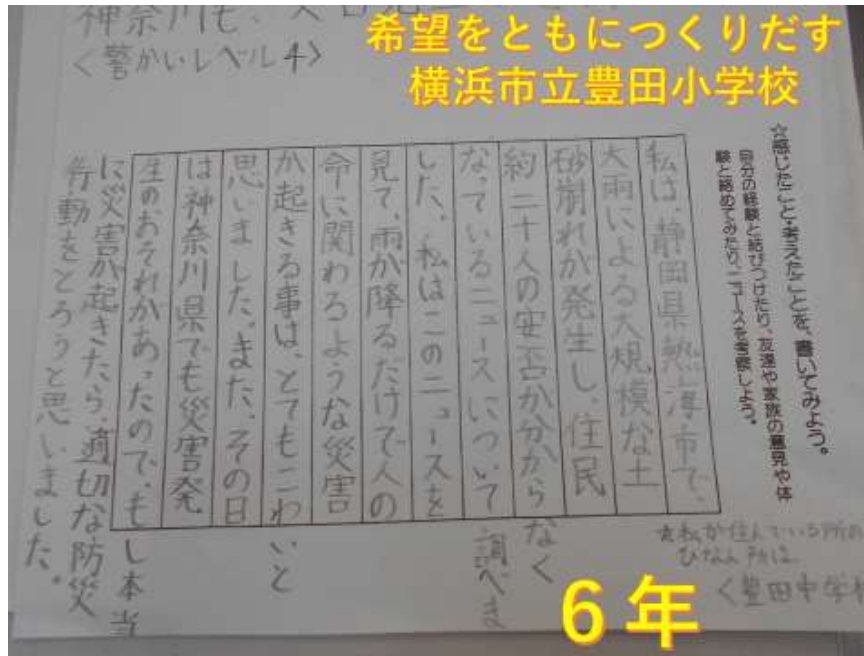 希望をともにつくりだす
横浜市立豊田小学校
神奈川も、
<警かいレベル4>
☆感じたこと・考えたことを、書いてみよう。
自分の経験と結びつけたり、友達や家族の意見や体
験と絡めてみたり、ニュースを考察しよう。
私は、静岡県熱海市で、
大雨による大規模な土
砂崩れが発生し、住民
約二十人の安否が分からなく
なっているニュースについて調べま
した。私はこのニュースを
見て、雨が降るだけで人の
命に関わるような災害
が起きる事は、とてもこわいと
思いました。また、その日
は神奈川県でも災害発
生のおそれがあったので、もし本当
に災害が起きたら、適切な防災
行動をとろうと思いました。
☆私が住んでいる所の
ひなん所は
<豊田中学校
6年